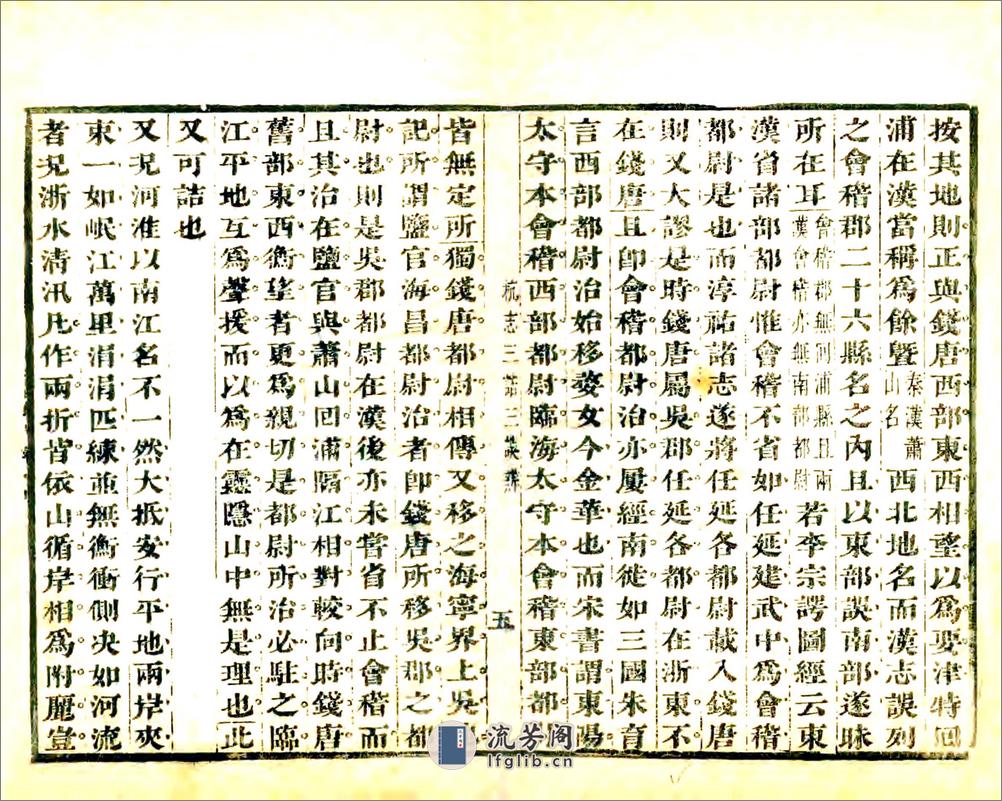 按其地則正與錢唐西部東西相望以爲要津特回
浦在漢當稱爲餘暨秦漢蕭山名西北地名而漢志誤列
之會稽郡二十六縣名之内且以東部誤南部遂昧
所在耳會稽郡無回浦縣且兩漢會稽亦無南部都尉若李宗諤圖經云東
漢省諸部都尉惟會稽不省如任延建武中爲會稽
都尉是也而淳祐諸志遂將任延各都尉載入錢唐
則又大謬是時錢唐屬吳郡任延各都尉在浙東不
在錢唐且卽會稽都尉治亦屢經南徙如三國朱育
言西部都尉治始移婺女今金華也而宋書謂東陽
太守本會稽西部都尉臨海太守本會稽東部都
杭志三詰三誤辨
五
皆無定所獨錢唐都尉相傳又移之海寧界上吳
記所謂鹽官海昌都尉治者卽錢唐所移吳郡之都
尉也則是吳郡都尉在漢後亦未嘗省不止會稽而
且其治在鹽官與蕭山回浦隔江相對較向時錢唐
舊部東西衡望者更爲親切是都尉所治必駐之臨
江平地互爲聲援而以爲在靈隱山中無是理也此
又可詰也
又况河淮以南江名不一然大抵安行平地兩岸夾
束一如岷江萬里涓涓匹練並無衡衝側决如河流
者况浙水清汛凡作兩折皆依山循岸相爲附麗豈
流芳阁
lfglib.cn